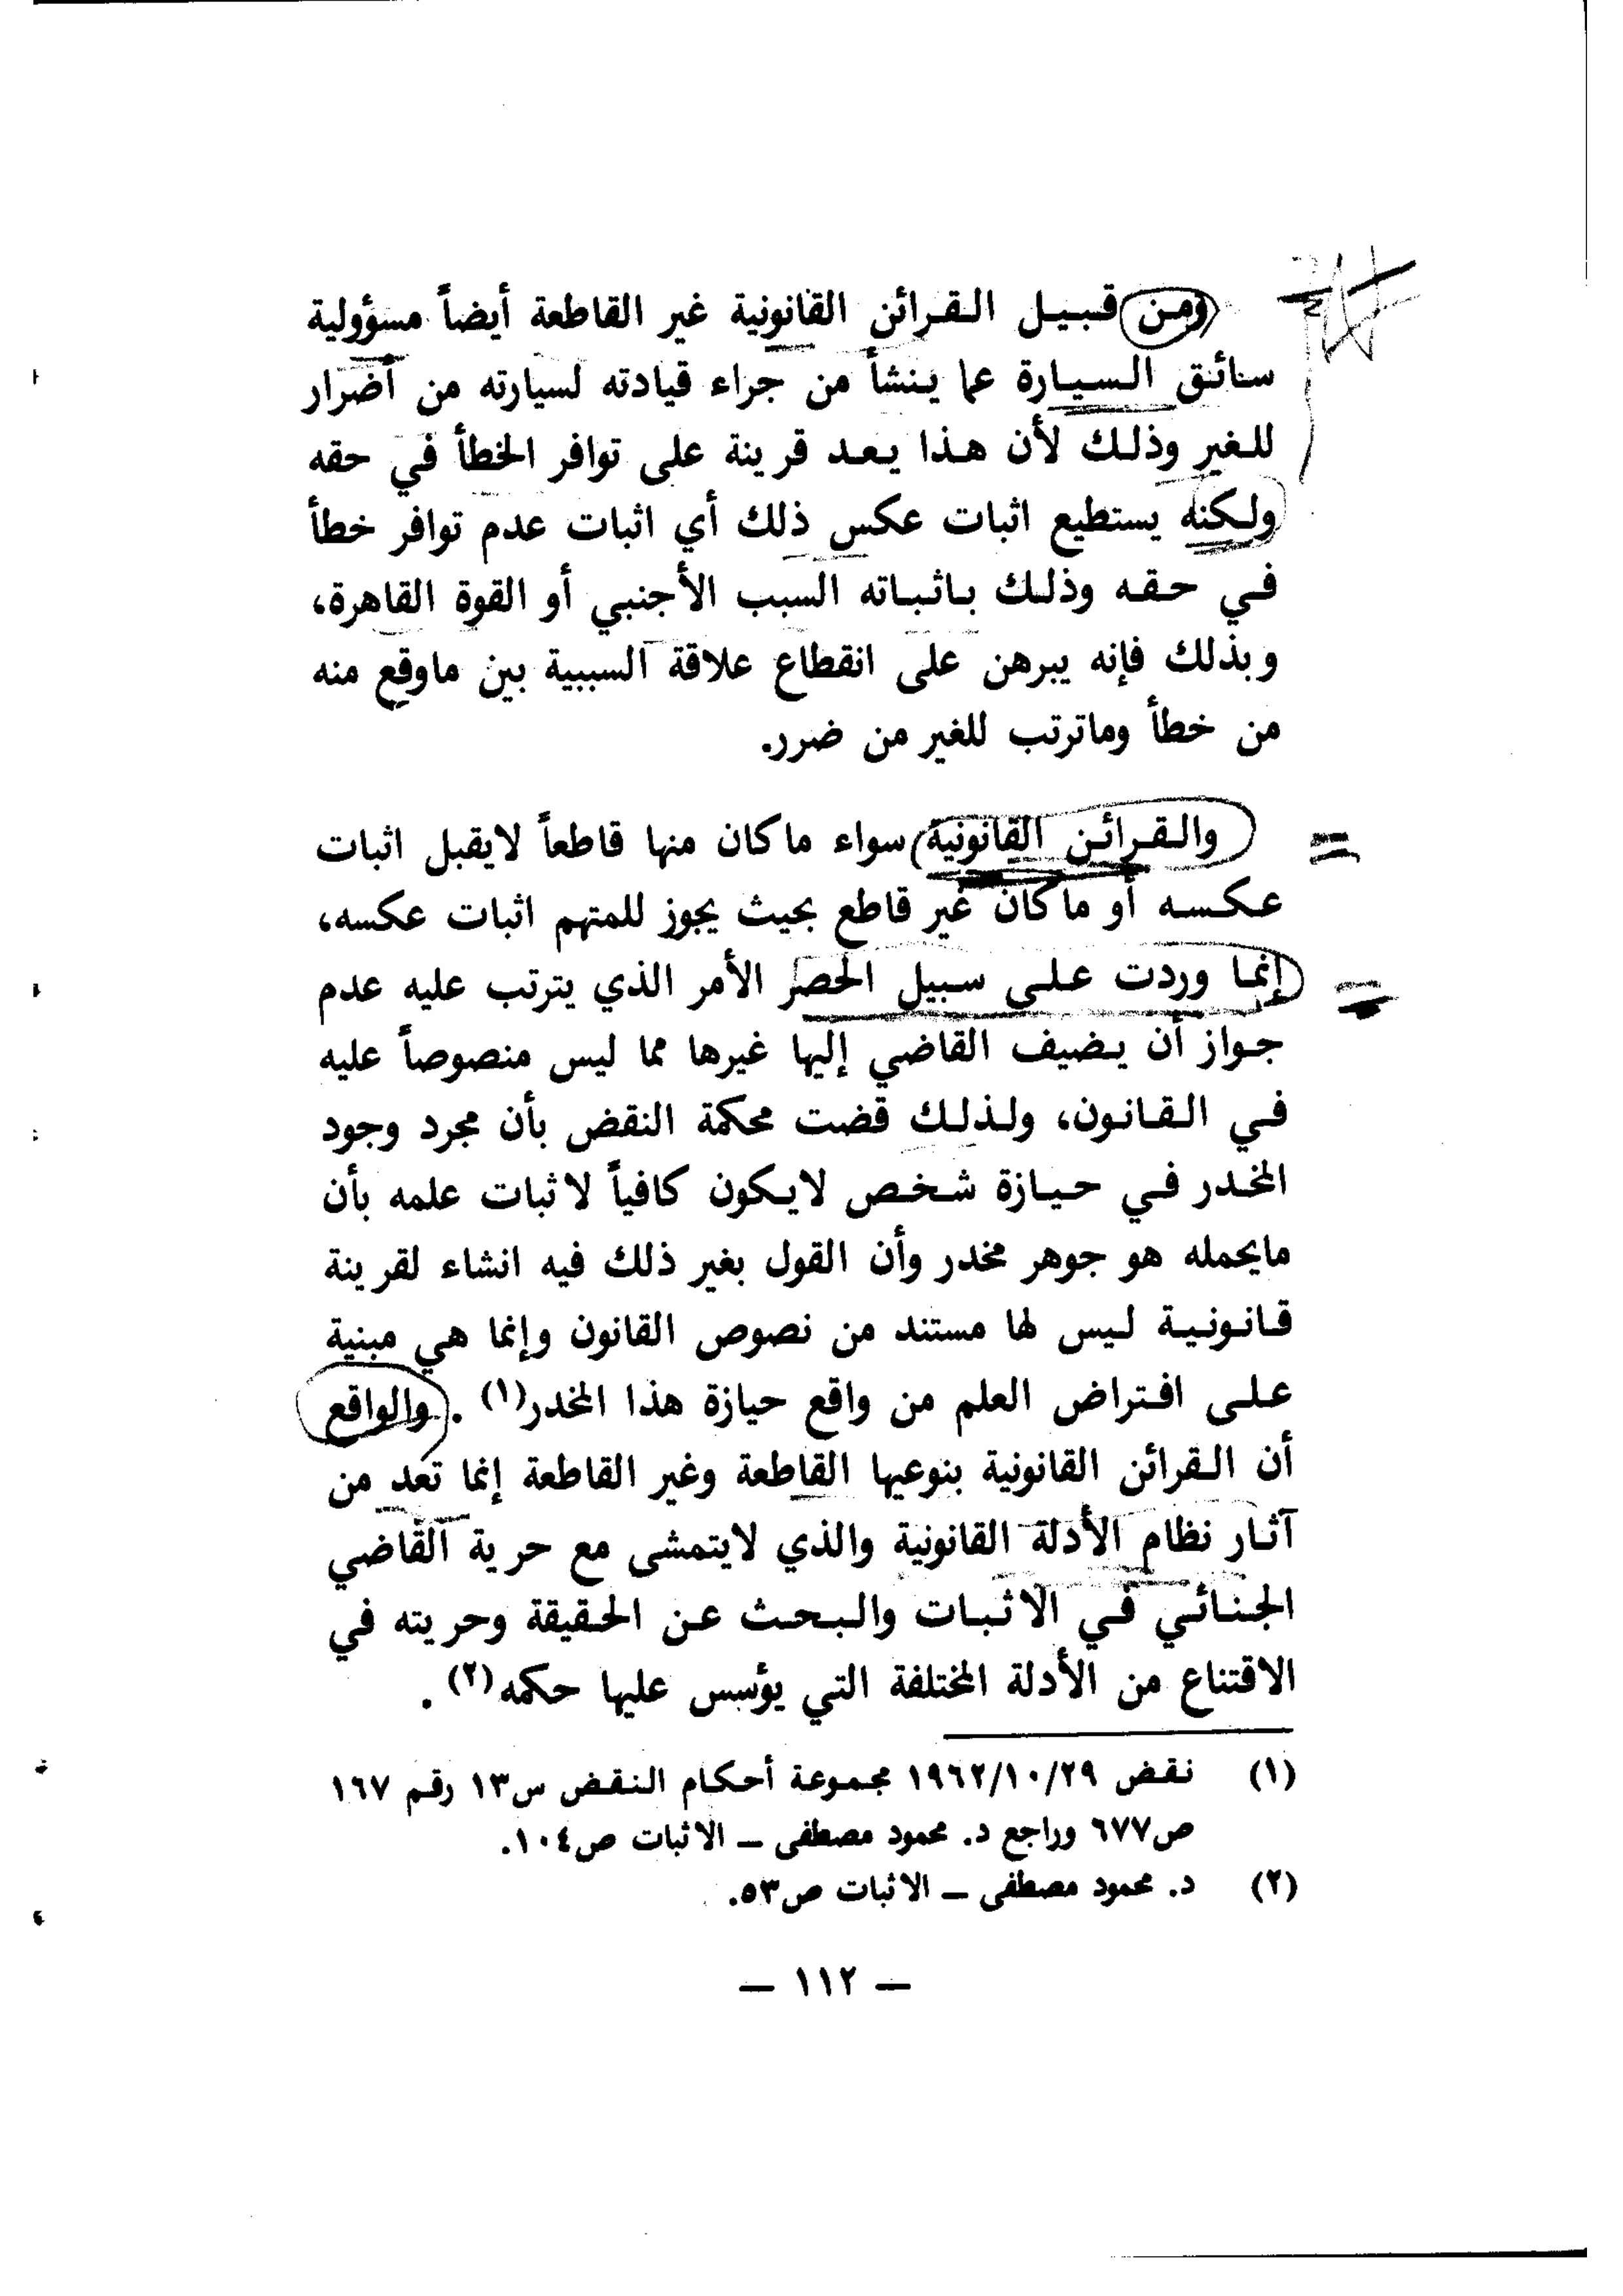 ومن قبيل القرائن القانونية غير القاطعة أيضاً مسؤولية
سائق السيارة عما ينشأ من جراء قيادته لسيارته من أضرار
للغير وذلك لأن هذا يعد قرينة على توافر الخطأ في حقه
ولكنه يستطيع اثبات عكس ذلك أي اثبات عدم توافر خطأ
في حقه وذلك باثباته السبب الأجنبي أو القوة القاهرة،
وبذلك فإنه يبرهن على انقطاع علاقة السببية بين ماوقع منه
من خطأ وماترتب للغير من ضرر.
والقرائن القانونية سواء ماكان منها قاطعاً لايقبل اثبات
عكسه أو ماكان غير قاطع بحيث يجوز للمتهم اثبات عكسه،
إنما وردت على سبيل الحصر الأمر الذي يترتب عليه عدم
جواز أن يضيف القاضي إليها غيرها مما ليس منصوصاً عليه
في القانون، ولذلك قضت محكمة النقض بأن مجرد وجود
المخدر في حيازة شخص لايكون كافياً لاثبات علمه بأن
مايحمله هو جوهر مخدر وأن القول بغير ذلك فيه انشاء لقرينة
قانونية ليس لها مستند من نصوص القانون وإنما هي مبنية
على افتراض العلم من واقع حيازة هذا المخدر(١). والواقع
أن القرائن القانونية بنوعيها القاطعة وغير القاطعة إنما تعد من
آثار نظام الأدلة القانونية والذي لايتمشى مع حرية القاضي
الجنائي في الاثبات والبحث عن الحقيقة وحريته في
الاقتناع من الأدلة المختلفة التي يؤسس عليها حكمه(٢).
(١) نقض ١٩٦٢/١٠/٢٩ مجموعة أحكام النقض س١٣ رقم ١٦٧
ص٦٧٧ وراجع د. محمود مصطفى ــ الاثبات ص١٠٤.
(٢) د. محمود مصطفى ــ الاثبات ص٥٣.
— ١١٢ —